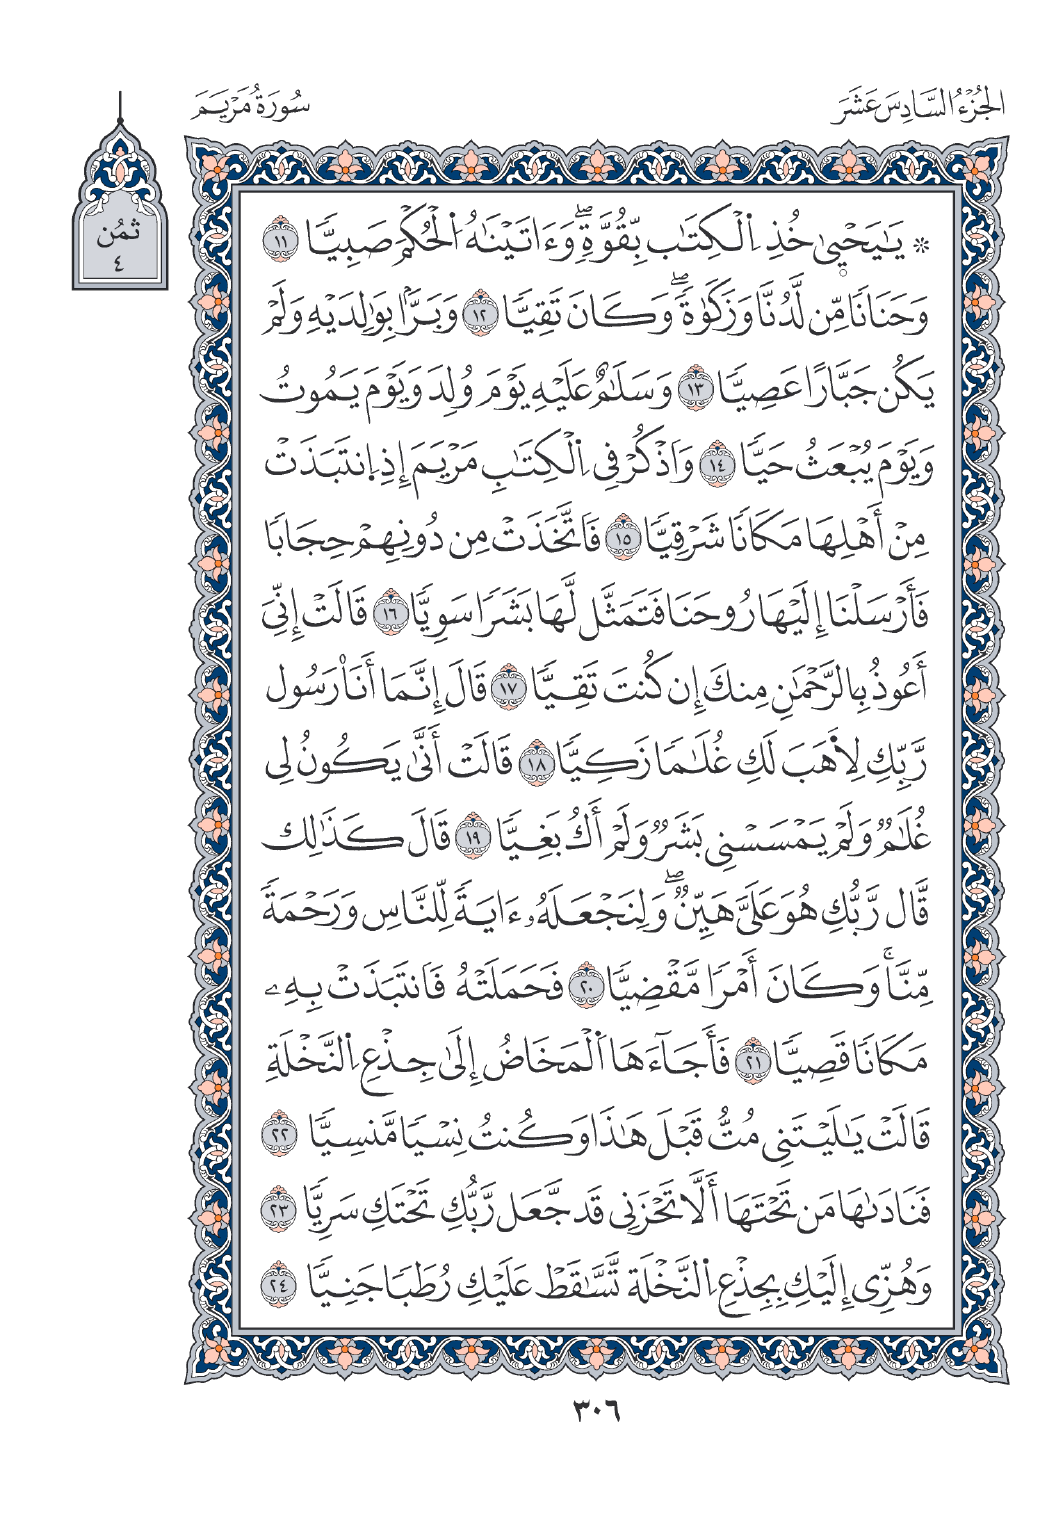 الجُزْءُ السَّادِسَ عَشَرَ
سُورَةُ مَرْيَمَ
ثُمُن
٤
۞ يَـٰيَحْي۪ىٰ خُذِ اِ۬لْكِتَٰب بِّقُوَّةٖۖ وَءَاتَيْنَـٰهُ اُ۬لْحُكْمَ صَبِيّٗا ١١
وَحَنَانٗا مِّن لَّدُنَّا وَزَكَوٰةٗۖ وَكَانَ تَقِيّٗا ١٢ وَبَرَّۢا بِوَٰلِدَيْهِ وَلَمْ
يَكُن جَبَّارًا عَصِيّٗا ١٣ وَسَلَٰمٌ عَلَيْهِ يَوْمَ وُلِدَ وَيَوْمَ يَمُوتُ
وَيَوْمَ يُبْعَثُ حَيّٗا ١٤ وَاَذْكُرْ فِى اِ۬لْكِتَٰبِ مَرْيَمَ إِذِ اِ۪نتَبَذَتْ
مِنْ أَهْلِهَا مَكَانٗا شَرْقِيّٗا ١٥ فَاَتَّخَذَتْ مِن دُونِهِمْ حِجَابٗا
فَأَرْسَلْنَا إِلَيْهَا رُوحَنَا فَتَمَثَّل لَّهَا بَشَرٗا سَوِيّٗا ١٦ قَالَتْ إِنِّىَ
أَعُوذُ بِالرَّحْمَٰنِ مِنكَ إِن كُنتَ تَقِيّٗا ١٧ قَالَ إِنَّمَا أَنَا۠ رَسُول
رَّبِّكِ لِأَهَبَ لَكِ غُلَٰمٗا زَكِيّٗا ١٨ قَالَتْ أَنَّىٰ يَكُونُ لِى
غُلَٰمٞ وَلَمْ يَمْسَسْنِى بَشَرٞ وَلَمْ أَكُ بَغِيّٗا ١٩ قَالَ كَذَٰلِك
قَّال رَّبُّكِ هُوَ عَلَىَّ هَيِّنٞۖ وَلِنَجْعَلَهُۥ ءَايَةٗ لِّلنَّاسِ وَرَحْمَةٗ
مِّنَّاۚ وَكَانَ أَمْرٗا مَّقْضِيّٗا ٢٠ فَحَمَلَتْهُ فَاَنتَبَذَتْ بِهِۦ
مَكَانٗا قَصِيّٗا ٢١ فَأَجَآءَهَا اَ۬لْمَخَاضُ إِلَىٰ جِذْعِ اِ۬لنَّخْلَةِ
قَالَتْ يَـٰلَيْتَنِى مُتُّ قَبْلَ هَـٰذَا وَكُنتُ نِسْيٗا مَّنسِيّٗا ٢٢
فَنَادَىٰهَا مَن تَحْتَهَا أَلَّا تَحْزَنِى قَد جَّعَل رَّبُّكِ تَحْتَكِ سَرِيّٗا ٢٣
وَهُزِّى إِلَيْكِ بِجِذْعِ اِ۬لنَّخْلَة تَّسَّٰقَطْ عَلَيْكِ رُطَبٗا جَنِيّٗا ٢٤
٣٠٦